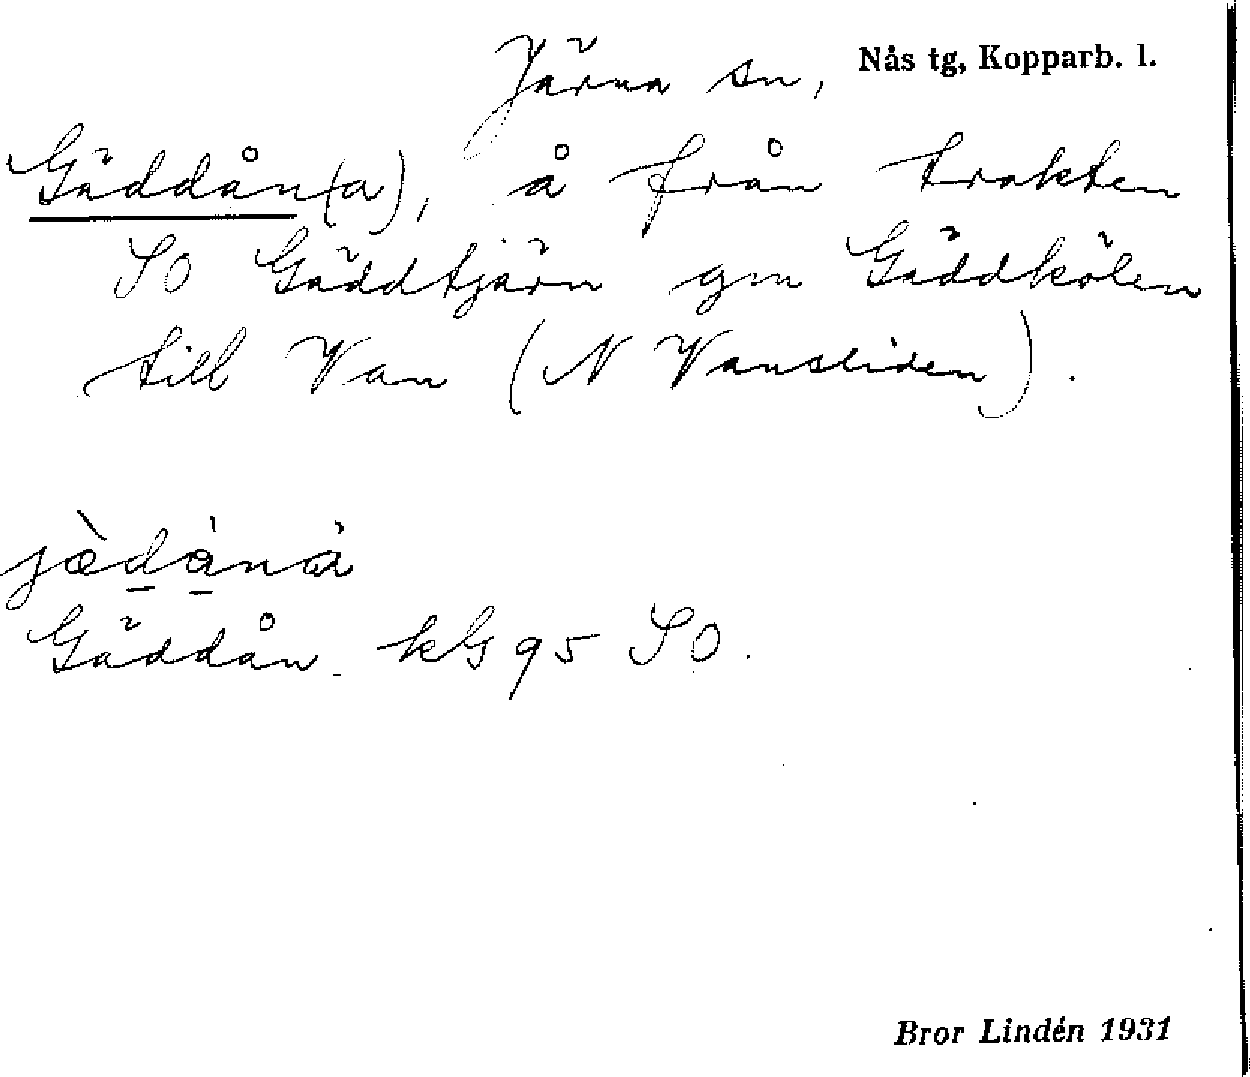 Järna sn, Nås tg, Kopparb. l.
Gäddån(a), å från trakten
SO Gäddtjärn gm Gäddkölen
till Van (N Vansliden).
jèdånå
Gäddån kbl 95 SO.
Bror Lindén 1931